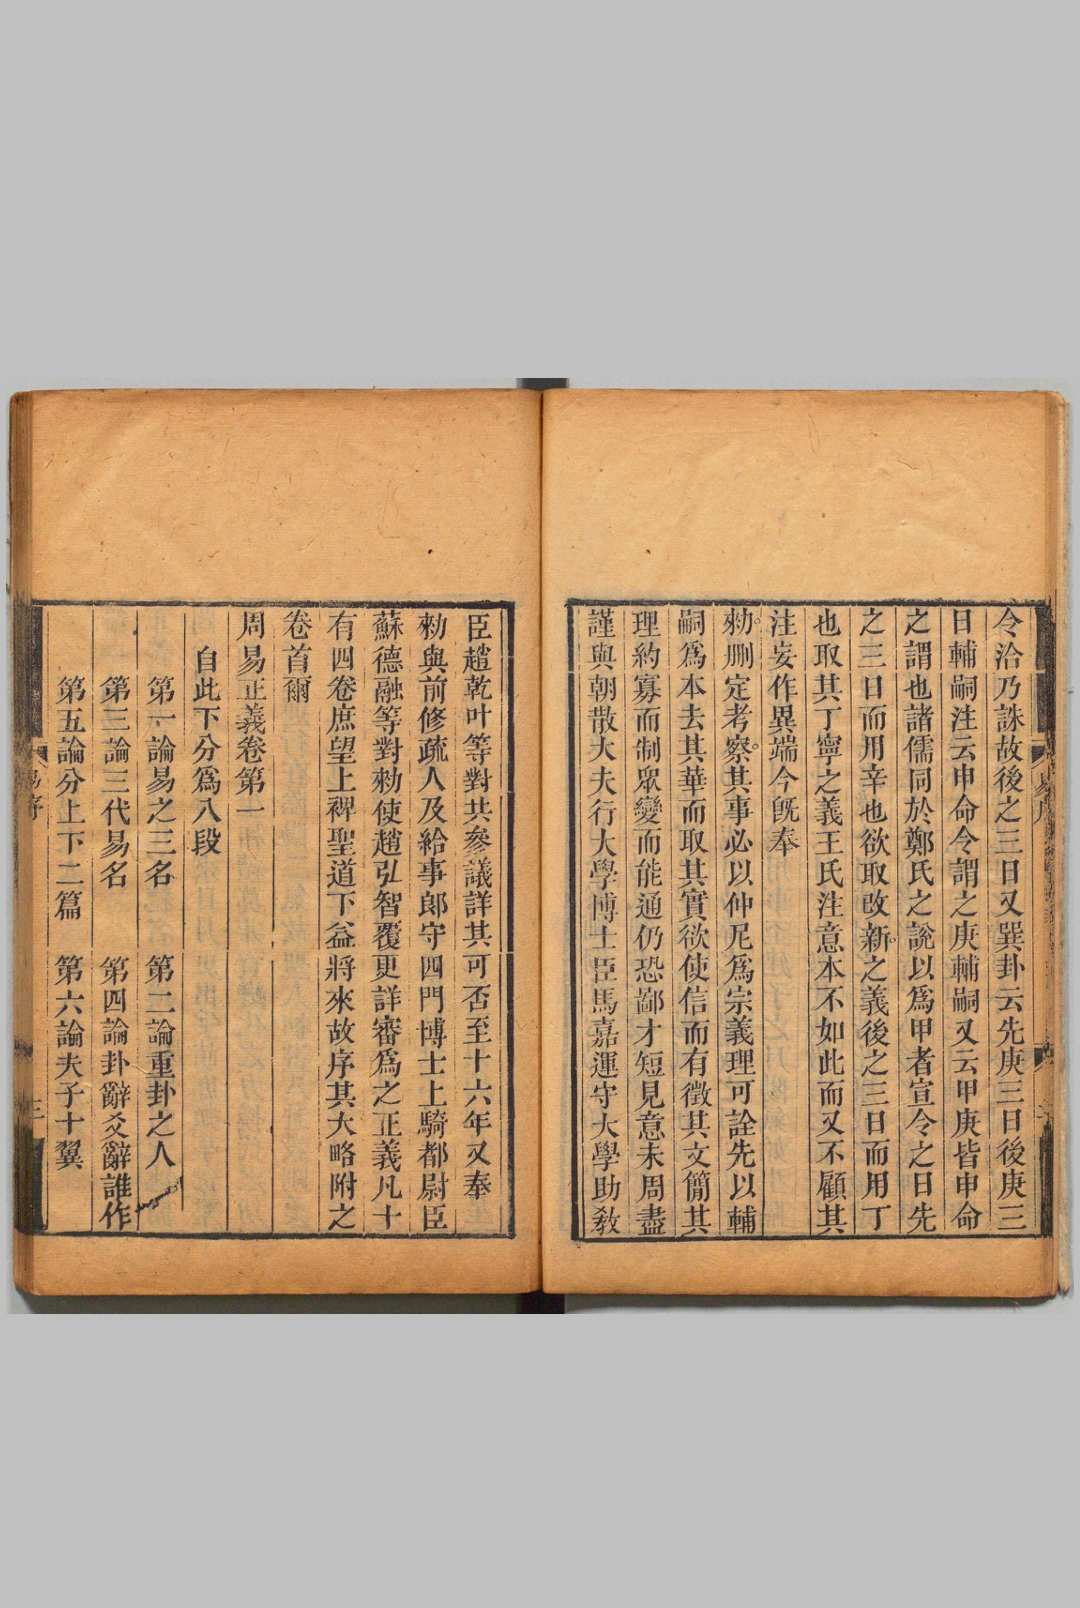 令洽乃誅故後之三日又巽卦云先庚三日後庚三
日輔嗣注云申命令謂之庚輔嗣又云甲庚皆申命
之謂也諸儒同於鄭氏之說以爲甲者宣令之日先
之三日而用辛也欲取改新之義後之三日而用丁
也取其丁寧之義王氏注意本不如此而又不顧其
注妄作異端今旣奉
勑刪定考察其事必以仲尼爲宗義理可詮先以輔
嗣爲本去其華而取其實欲使信而有徵其文簡其
理約寡而制眾變而能通仍恐鄙才短見意未周盡
謹與朝散大夫行大學博士臣馬嘉運守大學助敎
臣趙乾叶等對共參議詳其可否至十六年又奉
勑與前修疏人及給事郎守四門博士上騎都尉臣
蘇德融等對勑使趙弘智覆更詳審爲之正義凡十
有四卷庶望上裨聖道下益將來故序其大略附之
卷首爾
周易正義卷第一
自此下分爲八段
第一論易之三名 第二論重卦之人
第三論三代易名 第四論卦辭爻辭誰作
第五論分上下二篇 第六論夫子十翼
易序
三